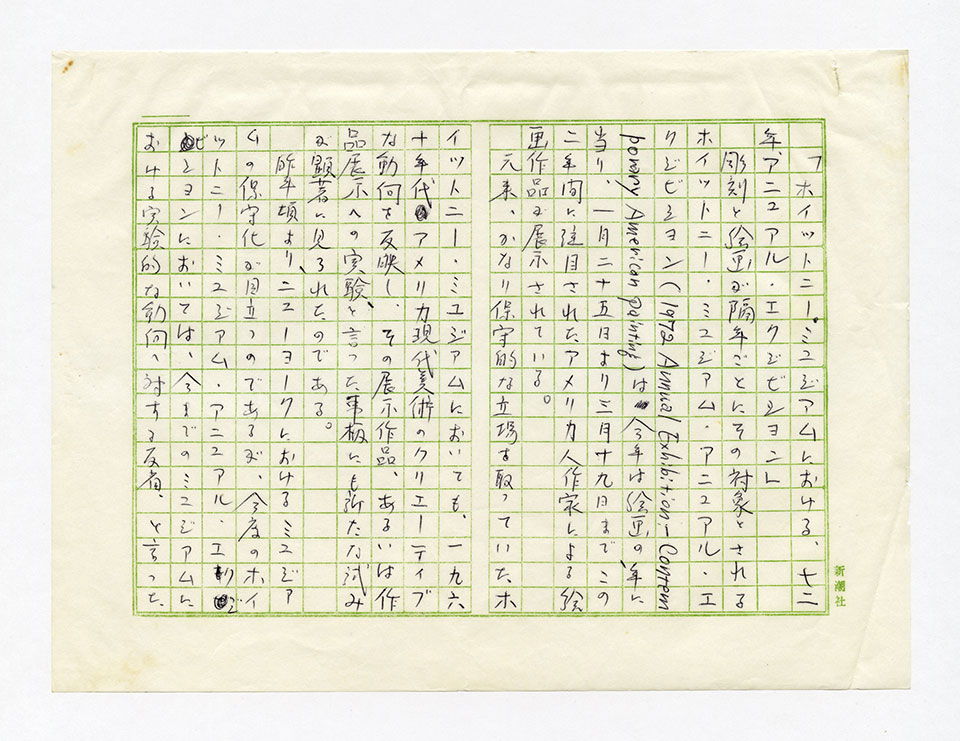 「ホイットニー・ミユジアムにおける、七二
年、アニユアル・エクジビシヨン」
彫刻と絵画が隔年ごとにその対象とされる
ホイットニー・ミユジアム・アニユアル・エ
クジビシヨン(1972 Annual Exhibition—Contem
porary American Painting)は今年は絵画の年に
当り、一月二十五日より三月十九日までこの
二年間に注目されたアメリカ人作家による絵
画作品が展示されている。
元来、かなり保守的な立場を取っていたホ
イットニー・ミユジアムにおいても、一九六
十年代アメリカ現代美術のクリエーティブ
な動向を反映し、その展示作品、あるいは作
品展示への実験、と言った事板にも新たな試み
が顕著に見られたのである。
昨年頃より、ニユーヨークにおけるミユジア
ムの保守化が目立つのであるが、今度のホイ
ットニー・ミユジアム・アニユアル・エクジ
ビシヨンにおいては、今までのミユジアムに
おける実験的な動向へ対する反省、と言った
新潮社